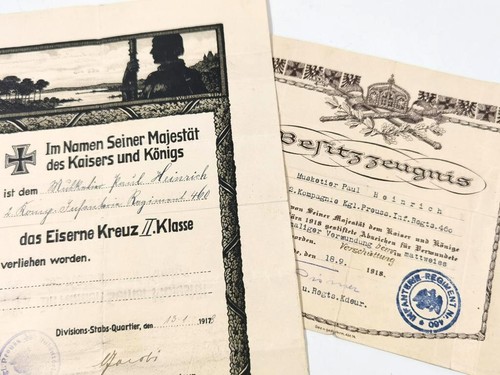 Im Namen Seiner Majestät
des Kaisers und Königs
ist dem Musketier Paul Heinrich
2. Komp. Infanterie Regiment 460
das Eiserne Kreuz II. Klasse
verliehen worden.
Divisions-Stabs-Quartier, den 13.1. 1917
Jacobi
Besitzzeugnis
Musketier Paul Heinrich
2. Kompagnie Kgl. Preuss. Inf. Regts. 460
von Seiner Majestät dem Kaiser und Könige
1918 gestiftete Abzeichen für Verwundete
maliger Verwundung in mattweiss
Verschüttung
worden.
den 18.9. 1918.
u. Regts. Kdeur.
INFANTERIE-REGIMENT Nr. 460